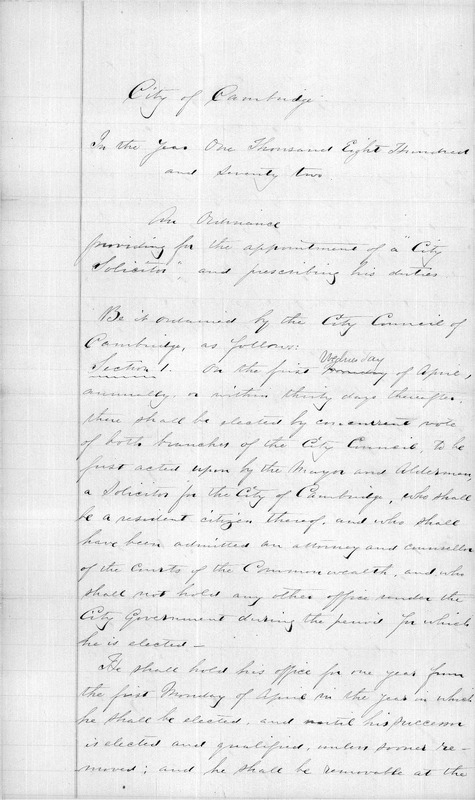 City of Cambridge
In the Year One Thousand Eight Hundred
and Seventy two.
An Ordinance
providing for the appointment of a "City
Solicitor", and prescribing his duties
Be it ordained by the City Council of
Cambridge, as follows:
Wednesday
Section 1. On the first Monday of April,
annually, or within thirty days thereafter,
there shall be elected by concurrent vote
of both branches of the City Council, to be
first acted upon by the Mayor and Aldermen,
a Solicitor for the City of Cambridge, who shall
be a resident citizen thereof, and who shall
have been admitted an attorney and counsellor
of the Courts of the Commonwealth, and who
shall not hold any other office under the
City Government during the period for which
he is elected —
He shall hold his office for one year from
the first Monday of April in the year in which
he shall be elected, and until his successor
is elected and qualified, unless sooner re-
moved; and he shall be removable at the